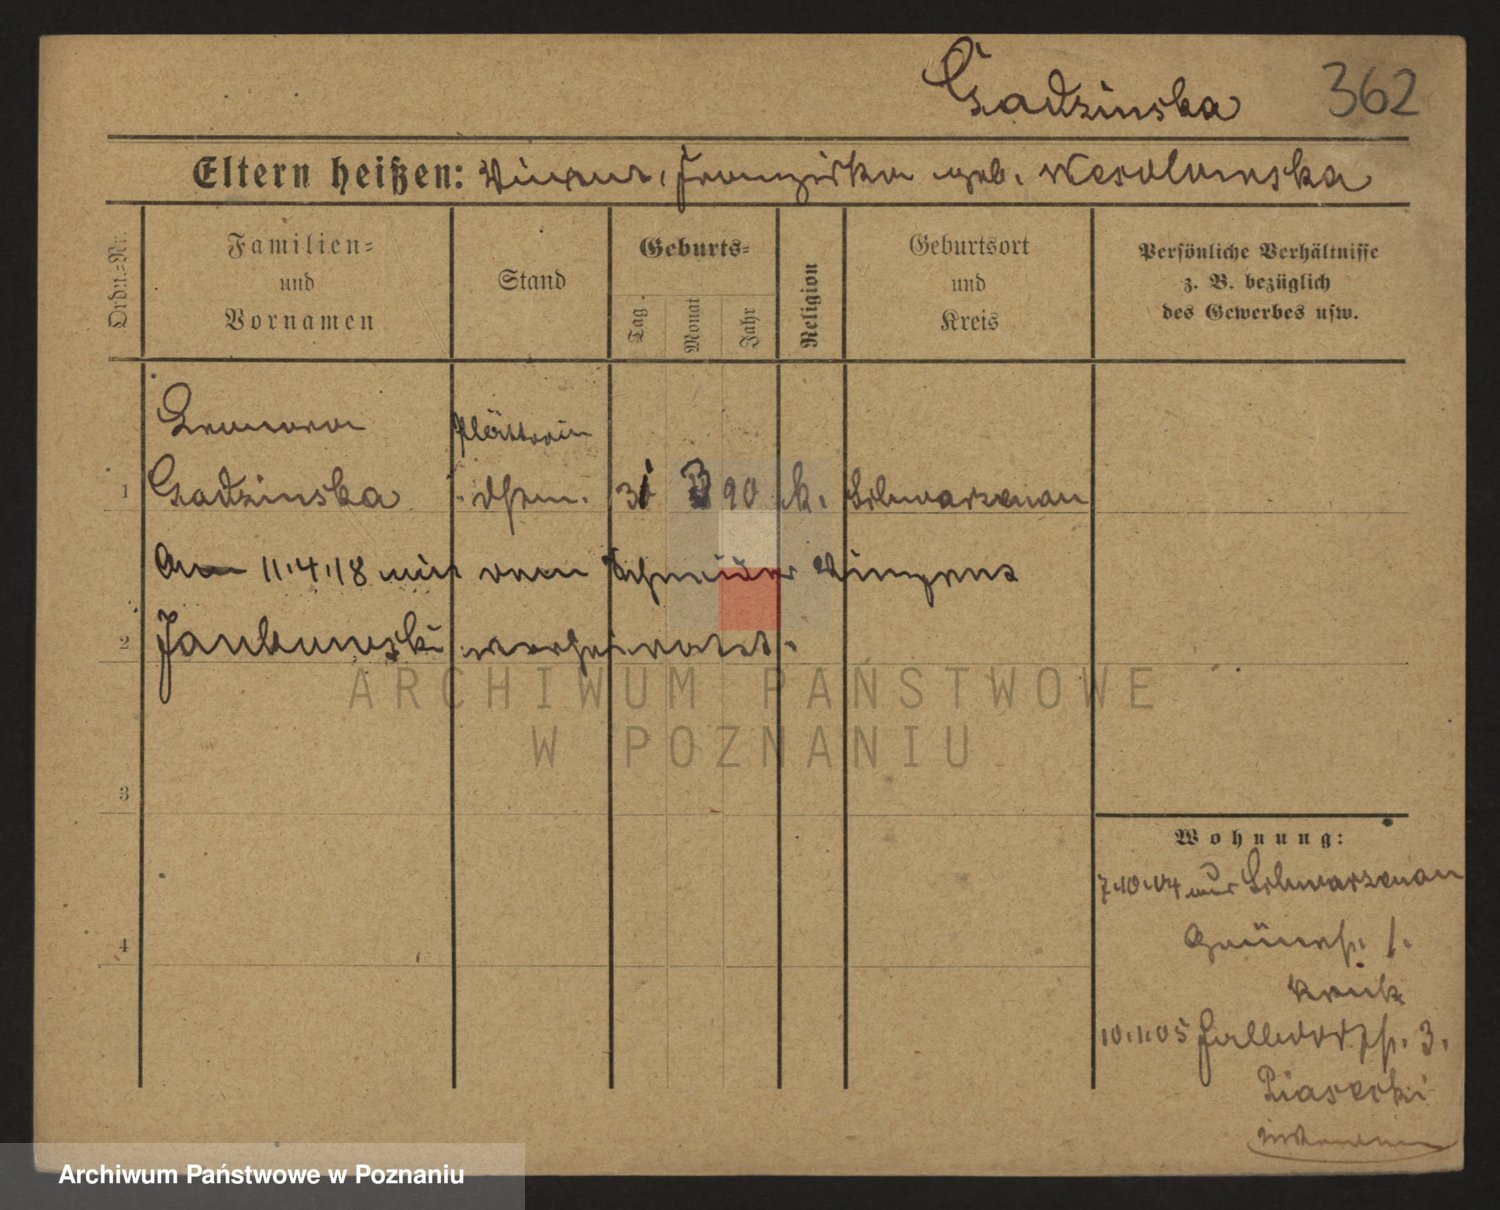 Gadzinska 362
Eltern heißen: Vincent, Franziska geb. Wesolowska
Ordn.-Nr.
Familien-
und
Vornamen
Stand
Geburts-
Tag
Monat
Jahr
Religion
Geburtsort
und
Kreis
Persönliche Verhältnisse
z. B. bezüglich
des Gewerbes usw.
Plätterin
1 Gadzinska 90 k. Schwarzenau
Am 11.4.18 mit dem Schneider Vinzent
2 Jankowski verheiratet.
3
4
Wohnung:
7.10.04 aus Schwarzenau
Grünestr. 1.
10.1.05 3.
Piasecki
ARCHIWUM PAŃSTWOWE
W POZNANIU
Archiwum Państwowe w Poznaniu